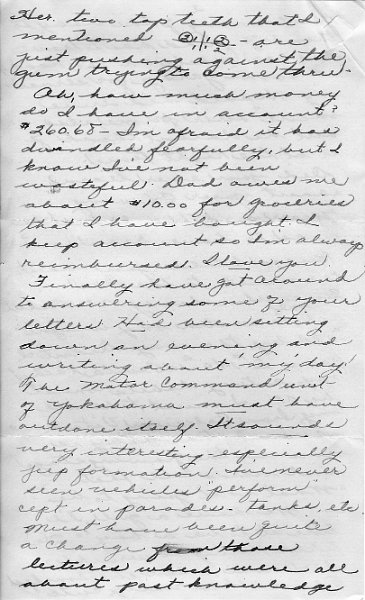 Her two top teeth that I
mentioned - are
just pushing against the
gum trying to come thru-
Oh, how much money
do I have in account?
$260.68 - I'm afraid it has
dwindled fearfully, but I
know I've not been
wasteful. Dad owes me
about $10.00 for groceries
that I have bought. I
keep account so I'm always
reimbursed. I love you.
Finally have got around
to answering some of your
letters. Had been sitting
down an evening and
writing about "my day".
The Motor Command unit
of Yokahama must have
outdone itself. It sounds
very interesting especially
jeep formation. I've never
seen vehicles "perform"
cept in parades - tanks, etc.
Must have been quite
a change from those
lectures which were all
about past knowledge